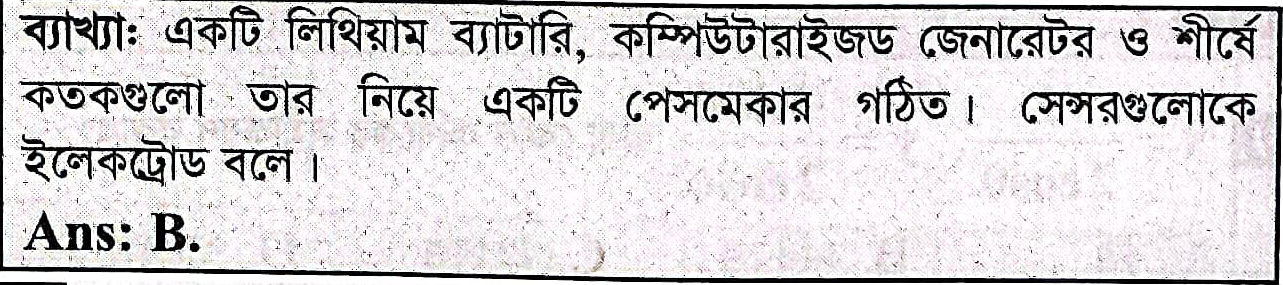 ব্যাখ্যা: একটি লিথিয়াম ব্যাটারি, কম্পিউটারাইজড জেনারেটর ও শীর্ষে
কতকগুলো তার নিয়ে একটি পেসমেকার গঠিত। সেন্সরগুলোকে
ইলেকট্রোড বলে।
Ans: B.